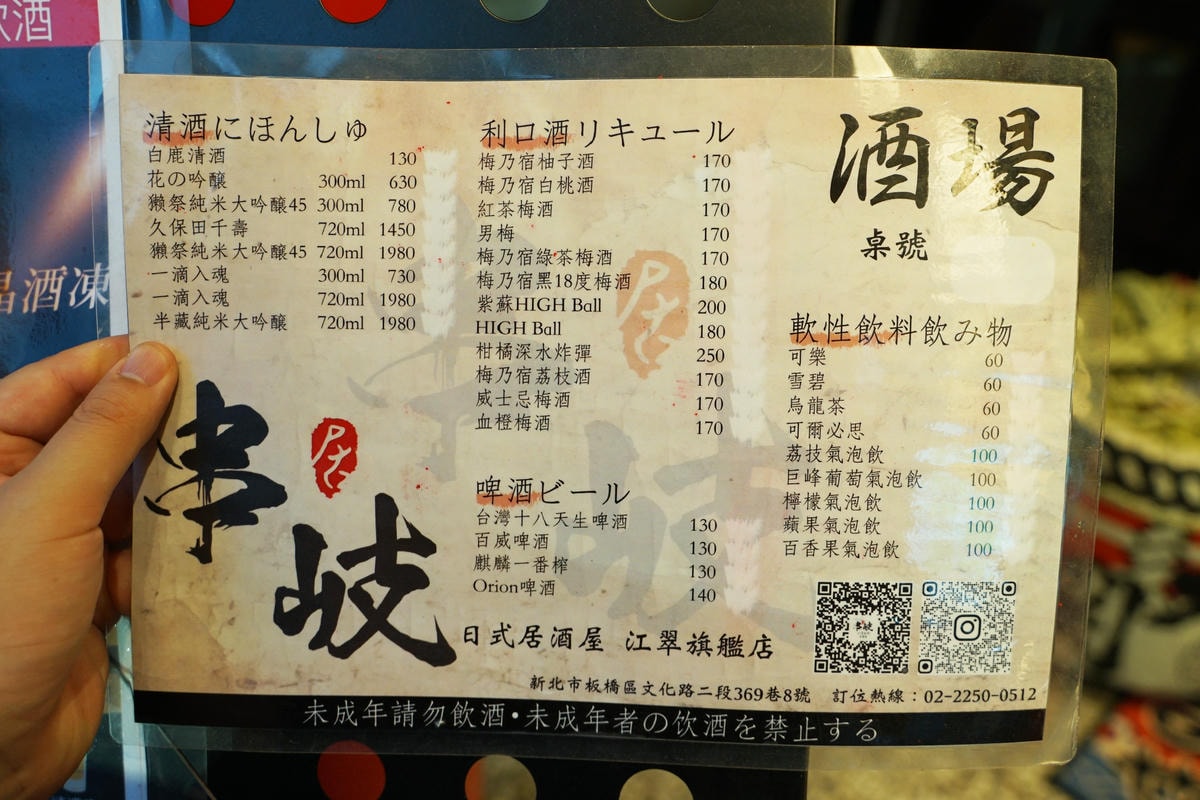 飲酒
酒凍
清酒にほんしゅ
白鹿清酒 130
花の吟醸 300ml 630
獺祭純米大吟醸45 300ml 780
久保田千壽 720ml 1450
獺祭純米大吟醸45 720ml 1980
一滴入魂 300ml 730
一滴入魂 720ml 1980
半藏純米大吟醸 720ml 1980
串岐
居
利口酒リキュール
梅乃宿柚子酒 170
梅乃宿白桃酒 170
紅茶梅酒 170
男梅 170
梅乃宿綠茶梅酒 170
梅乃宿黑18度梅酒 180
紫蘇HIGH Ball 200
HIGH Ball 180
柑橘深水炸彈 250
梅乃宿荔枝酒 170
威士忌梅酒 170
血橙梅酒 170
啤酒ビール
台灣十八天生啤酒 130
百威啤酒 130
麒麟一番榨 130
Orion啤酒 140
酒場
桌號
軟性飲料飲み物
可樂 60
雪碧 60
烏龍茶 60
可爾必思 60
荔技氣泡飲 100
巨峰葡萄氣泡飲 100
檸檬氣泡飲 100
蘋果氣泡飲 100
百香果氣泡飲 100
日式居酒屋 江翠旗艦店
新北市板橋區文化路二段369巷8號 訂位熱線：02-2250-0512
未成年請勿飲酒•未成年者の饮酒を禁止する